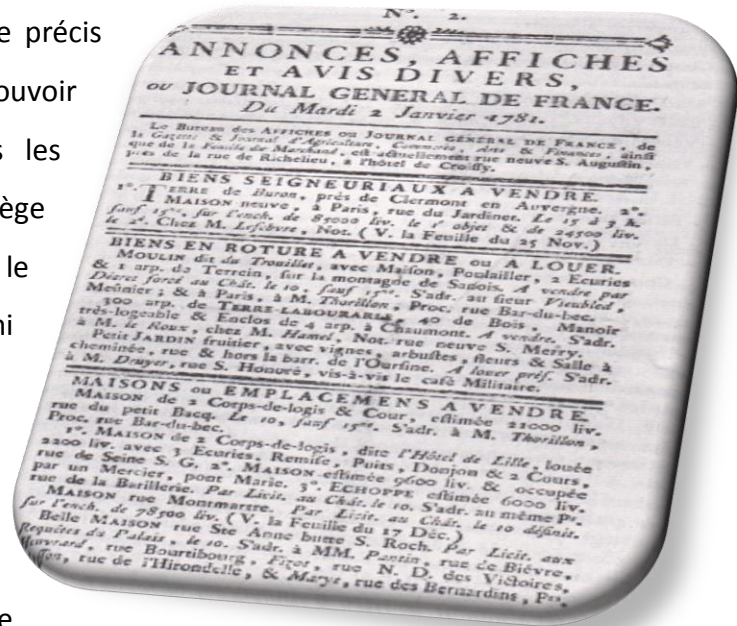 e précis
ouvoir
s les
ège
le
ni
e
N°. 2.
ANNONCES, AFFICHES
ET AVIS DIVERS,
OU JOURNAL GENERAL DE FRANCE.
Du Mardi 2 Janvier 1781.
Le Bureau des AFFICHES ou JOURNAL GÉNÉRAL DE FRANCE, de
la Gazette & Journal d'Agriculture, Commerce, Arts & Finances, ainsi
que de la Feuille du Marchand, est actuellement rue neuve S. Augustin,
près de la rue de Richelieu, à l'hôtel de Croissy.
BIENS SEIGNEURIAUX A VENDRE.
1°. TERRE de Buron, près de Clermont en Auvergne. 2°.
MAISON neuve, à Paris, rue du Jardinet. Le 15 à 3 h.
sauf 15ne, sur l'ench. de 85000 liv. le 1r objet & de 24500 liv.
le 2e. Chez M. Lefebvre, Not. (V. la Feuille du 25 Nov.)
BIENS EN ROTURE A VENDRE ou A LOUER.
MOULIN dit du Trouillet, avec Maison, Poulailler, 2 Ecuries
& 1 arp. de Terrein, sur la montagne de Sanois. A vendre par
Décret forcé au Chât. le 10, sauf 15ne. S'adr. au sieur
Meûnier; & à Paris, à M. Thorillon, Proc. rue Bar-du-bec.
300 arp. de TERRE-LABOURABLE, 40 de Bois, Manoir
très-logeable & Enclos de 4 arp. à Chaumont. A vendre. S'adr.
à M. le Roux, chez M. Hamel, Not. rue neuve S. Merry.
Petit JARDIN fruitier, avec vignes, arbustes, fleurs & Salle à
cheminée, rue & hors la barr. de l'Oursine. A louer prés. S'adr.
à M. Druyer, rue S. Honoré, vis-à-vis le café Militaire.
MAISONS ou EMPLACEMENS A VENDRE.
MAISON de 2 Corps-de-logis & Cour, estimée 21000 liv.
rue du petit Bacq. Le 10, sauf 15ne. S'adr. à M. Thorillon,
Proc. rue Bar-du-bec.
1°. MAISON de 2 Corps-de-logis, dite l'Hôtel de Lille, louée
2200 liv. avec 3 Ecuries, Remise, Puits, Donjon & 2 Cours,
rue de Seine S. G. 2°. MAISON estimée 9600 liv. & occupée
par un Mercier, pont Marie. 3°. ECHOPPE estimée 6000 liv.
rue de la Barillerie. Par Licit. au Chât. le 10. S'adr. au même Pr.
MAISON rue Montmartre. Par Licit. au Chât. le 10 définit.
sur l'ench. de 78500 liv. (V. la Feuille du 17 Déc.)
Belle MAISON rue Ste Anne butte S. Roch. Par Licit. aux
Requêtes du Palais, le 10. S'adr. à MM. Pantin, rue de Biévre,
rue Bourtibourg, Fizot, rue N. D. des Victoires,
rue de l'Hirondelle, & Marye, rue des Bernardins, Prs.